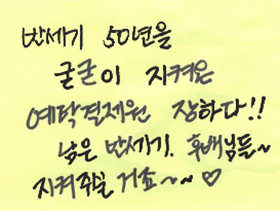 반세기 50년을
굳굳이 지켜온
예탁결제원 장하다!!
남은 반세기. 후배님들~
지켜주실 거죠~~♡